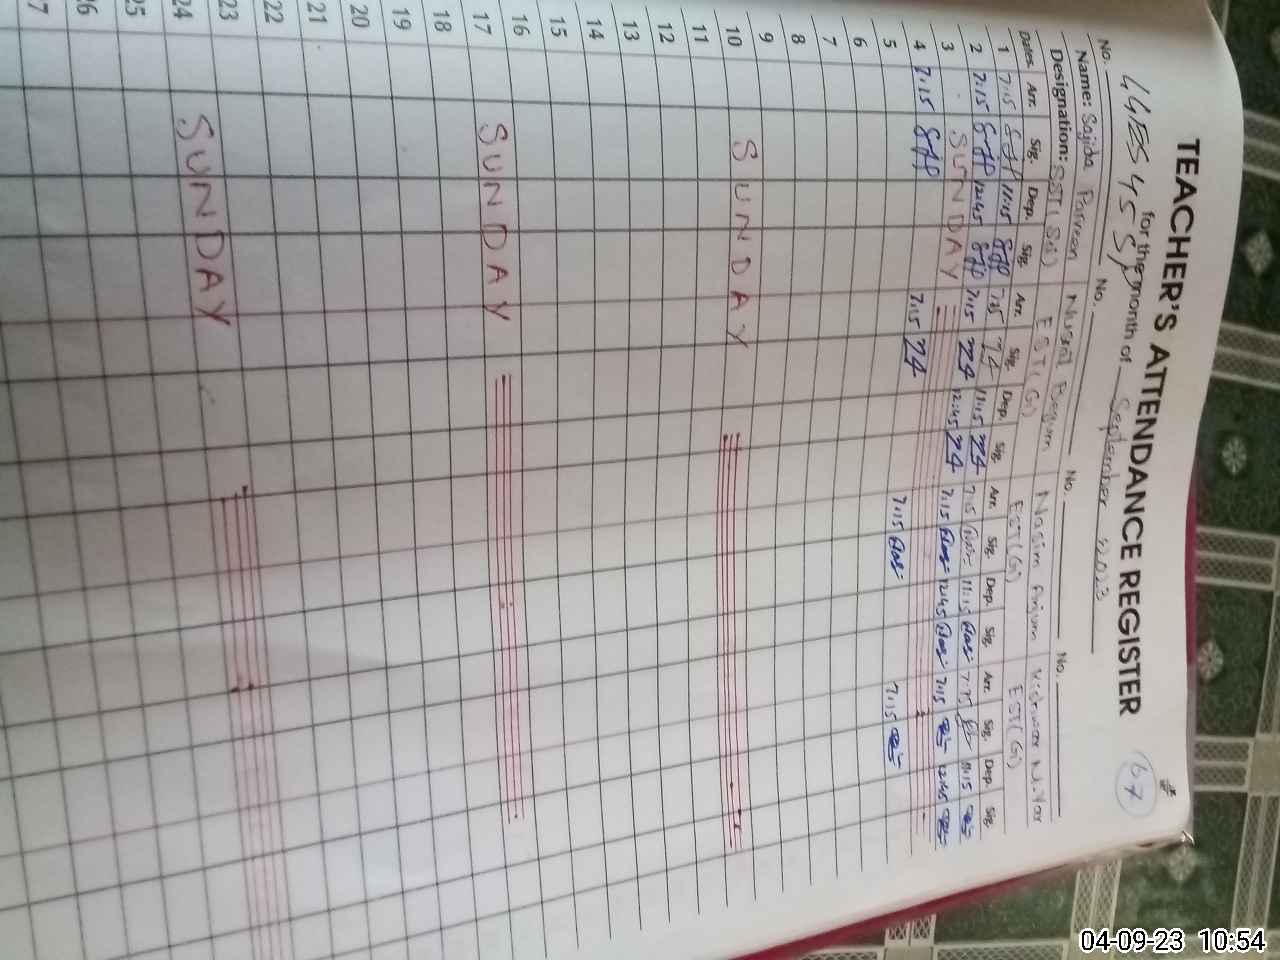 TEACHER'S ATTENDANCE REGISTER
67
GGES 45 SP for the month of September 2023
No. No. No. No.
Name: Sajida Parveen Nusrat Begum Nasim Anjum
Designation: SST( EST(G) EST(G) EST(G)
Dates. Arr. Sig. Dep. Sig. Arr. Sig. Dep. Sig. Arr. Sig. Dep. Sig. Arr. Sig. Dep. Sig.
1 7:15 11:15 7:15 11:15 7:15 11:15 7:15 11:15
2 7:15 12:45 7:15 12:45 7:15 12:45 7:15 12:45
3 SUNDAY
4 7:15 7:15 7:15 7:15
5
6
7
8
9
10 SUNDAY
11
12
13
14
15
16
17 SUNDAY
18
19
20
21
22
23
24 SUNDAY
25
26
27
04-09-23 10:54